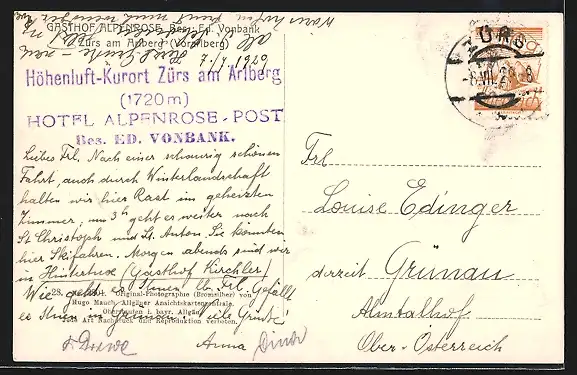 GASTHOF ALPENROSE, Bes.: Ed. Vonbank
Zürs am Arlberg (Vorarlberg)
7./7 1929
Höhenluft-Kurort Zürs am Arlberg
(1720m)
HOTEL ALPENROSE-POST
Bes. ED. VONBANK.
Liebes Frl. Nach einer schaurig schönen
Fahrt, auch durch Winterlandschaft
halten wir hier Rast im geheizten
Zimmer, um 3h geht es weiter nach
St Christoph und St. Anton. Sie könnten
hier Skifahren. Morgen abends sind wir
in Hintertux (Gasthof Kirchler)
Wie geht es Ihnen lb. Frl. Gefällt
es Ihnen in Grünau? Viele Grüße
28.
Original-Photographie (Bromsilber) von
Hugo Mauch, Allgäuer Ansichtskartenzentrale,
Oberstaufen i. bayr. Allgäu
Nachdruck und Reproduktion verboten.
Anna
ZÜRS
Frl
Louise Edinger
derzeit Grünau
Almtalhof.
Ober-Österreich